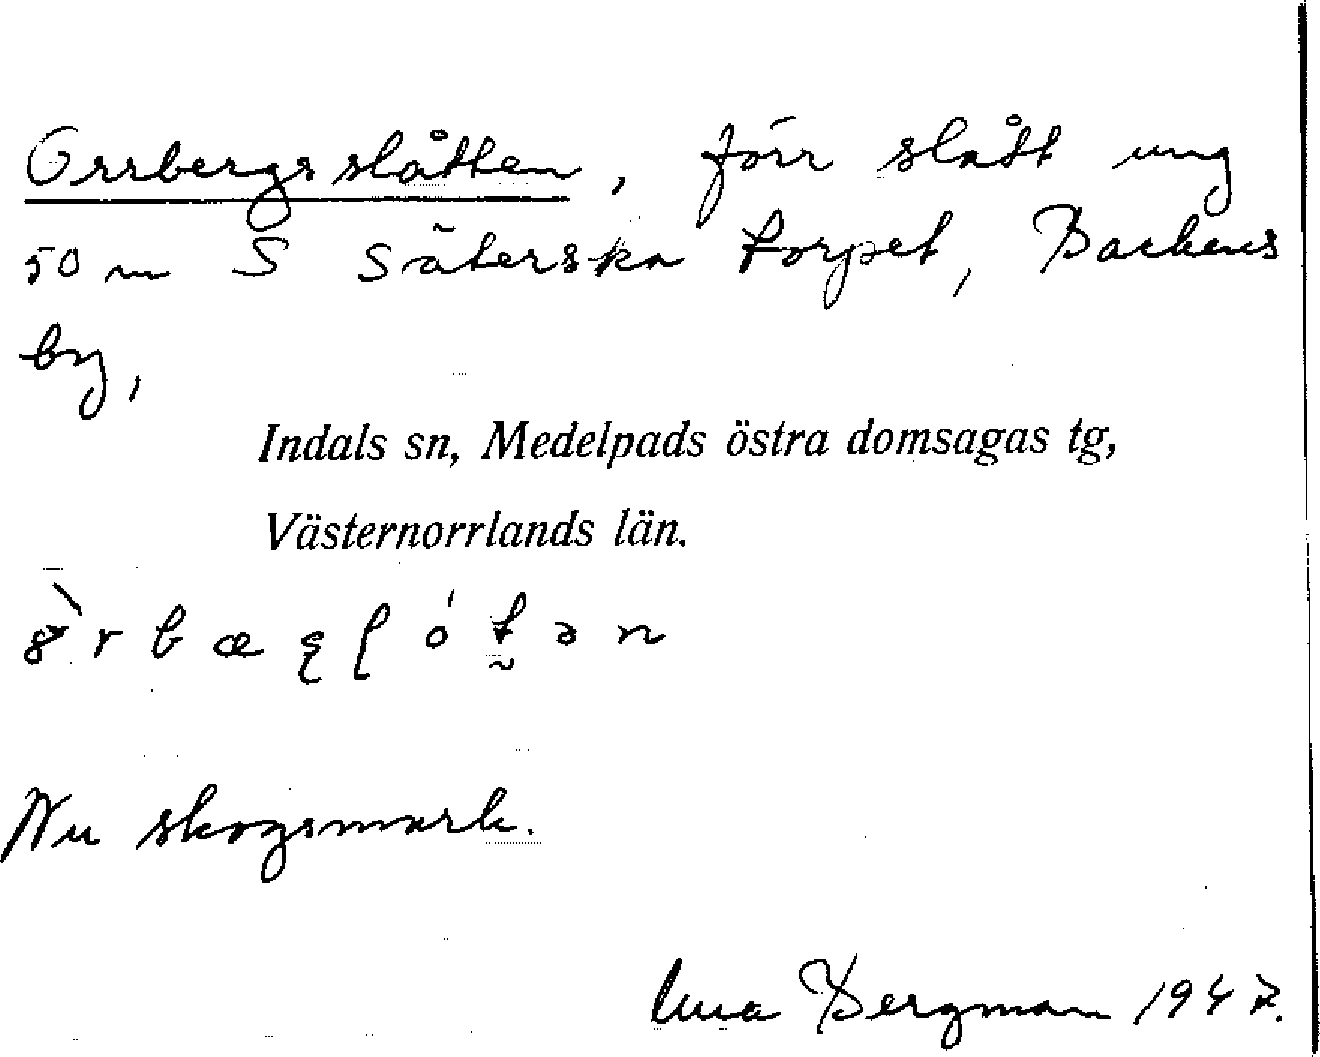 Orrbergsslåtten, förr slått ung
50 m S Säterska torpet, Backens
by,
Indals sn, Medelpads östra domsagas tg,
Västernorrlands län.
Nu skogsmark.
Bergman 1947.